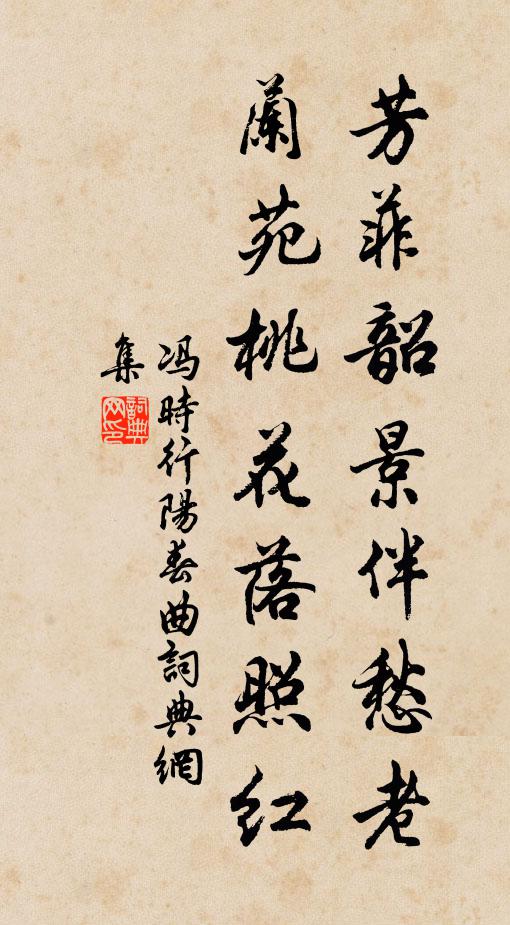 芳菲韶景伴愁老
蘭苑桃花落照红
冯時行陽春曲詞典網
集
詞典
网印